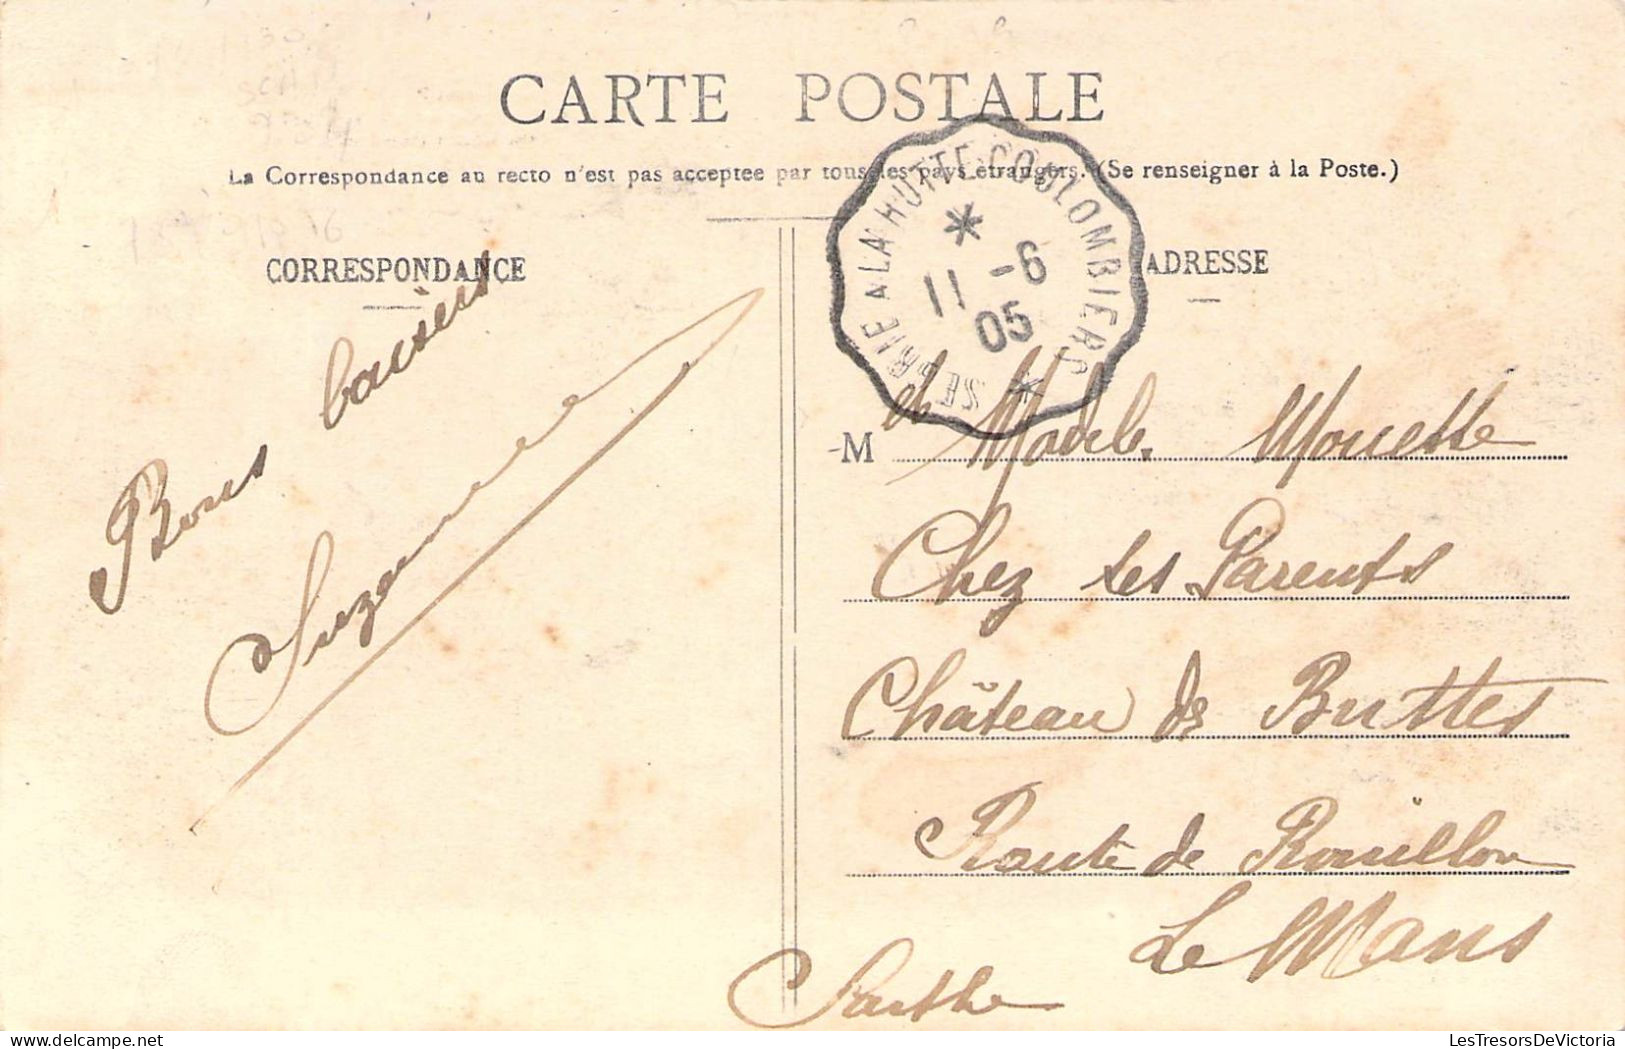 CARTE POSTALE
La Correspondance au recto n'est pas acceptee par tous les pays étrangers. (Se renseigner à la Poste.)
CORRESPONDANCE
ADRESSE
SEGRIE A LA HUTTE-COULOMBIERS
11 -6
05
Bons baisers
Suzanne
M Mouette
Chez ses Parents
Château de Buttes
Route de Rouillon
Le Mans
Sarthe
LesTresorsDeVictoria